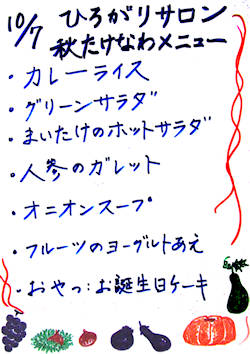 10/7 ひろがりサロン
秋たけなわメニュー
・カレーライス
・グリーンサラダ
・まいたけのホットサラダ
・人参のガレット
・オニオンスープ
・フルーツのヨーグルトあえ
・おやつ:お誕生日ケーキ